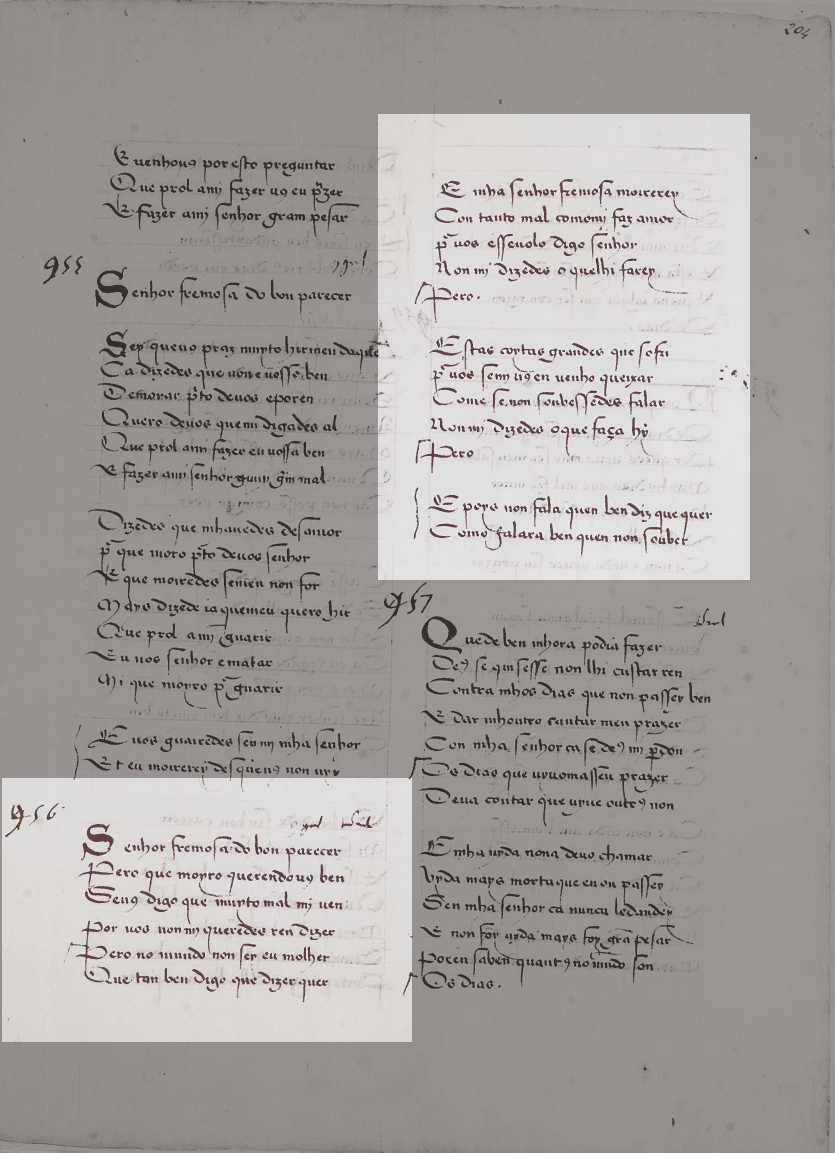 204
E uenhouꝯ por esto preguntar
Que prol ami fazer uꝯ eu p̃zer
E fazer ami senhor gram pesar
955
Senhor fremosa do bon parecer
Sey queuꝯ praz muyto hirmeu daquẽ
Ca dizedes que non e uosso ben
Demorar p̃to deuos e poren
Quero deuos quemi digades al
Que prol ami fazer eu uossa ben
E fazer ami senhor g̃m mal
Dizedes que mhauedes desamor
p̃ que moro p̃to deuos senhor
E que moiredes semen non for
Mays dizede ia quemeu quero hir
Que prol ami guarir
Eu uos senhor e matar
Mi que moyro p̃ guarir
E uos guairedes sen mi mha senhor
Et eu moirerey des quenꝯ non uyr
956
Senhor fremosa do bon parecer
Pero que moyro querendouꝯ ben
Seuꝯ digo que muyto mal mi uen
Por uos non mi queredes ren dizer
Pero no mundo non sey eu molher
Que tan ben digo que dizer quer
E mha senhor fremosa moirerey
Con tanto mal comomj faz amor
p̃ uos esseuolo digo senhor
Non mi dizedes o quelhi farey
Pero.
Estas coytas grandes que sofri
p̃ uos semi uꝯ en uenho queixar
Come se non soubessedes falar
Non mi dizedes o que faça hy
Pero
E poys non fala quen ben diz que quer
Como falara ben quen non souber
957
Quede ben mhora podia fazer
Deꝯ se quisesse non lhi custar ren
Contra mhos dias que non passey ben
E dar mhoutro cantar meu prazer
Con mha senhor ca se deꝯ mi p̃don
Os dias que uyuomassen prazer
Deua contar que uyue outrꝯ non
E mha uyda nona deuo chamar
Uyda mays morta que en ou passey
Sen mha senhor ca nunca ledandey
E non foy uyda mays foy grã pesar
Poren saben quantꝯ no mundo son
Os dias.